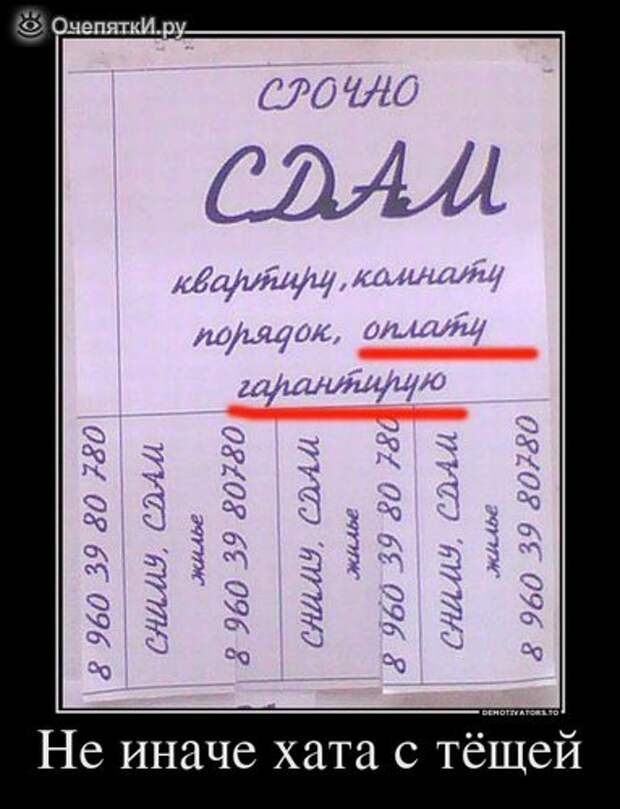 ОчепяткИ.ру
СРОЧНО
СДАМ
квартиру, комнату
порядок, оплату
гарантирую
8 960 39 80 780
СНИМУ, СДАМ
жилье
8 960 39 80780
СНИМУ, СДАМ
жилье
8 960 39 80 780
СНИМУ, СДАМ
жилье
8 960 39 80780
DEMOTIVATORS.TO
Не иначе хата с тёщей